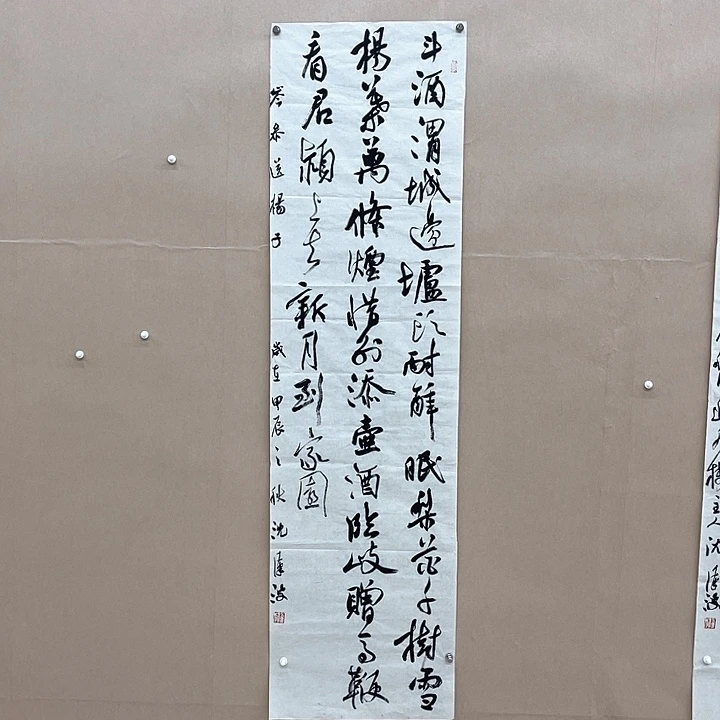 斗酒渭城邊壚頭耐醉眠梨花千樹雪
楊葉萬條煙惜別添壺酒臨岐贈馬鞭
看君潁上去新月到家圓
岑參送楊子 歲在甲辰之秋沈
主人沈